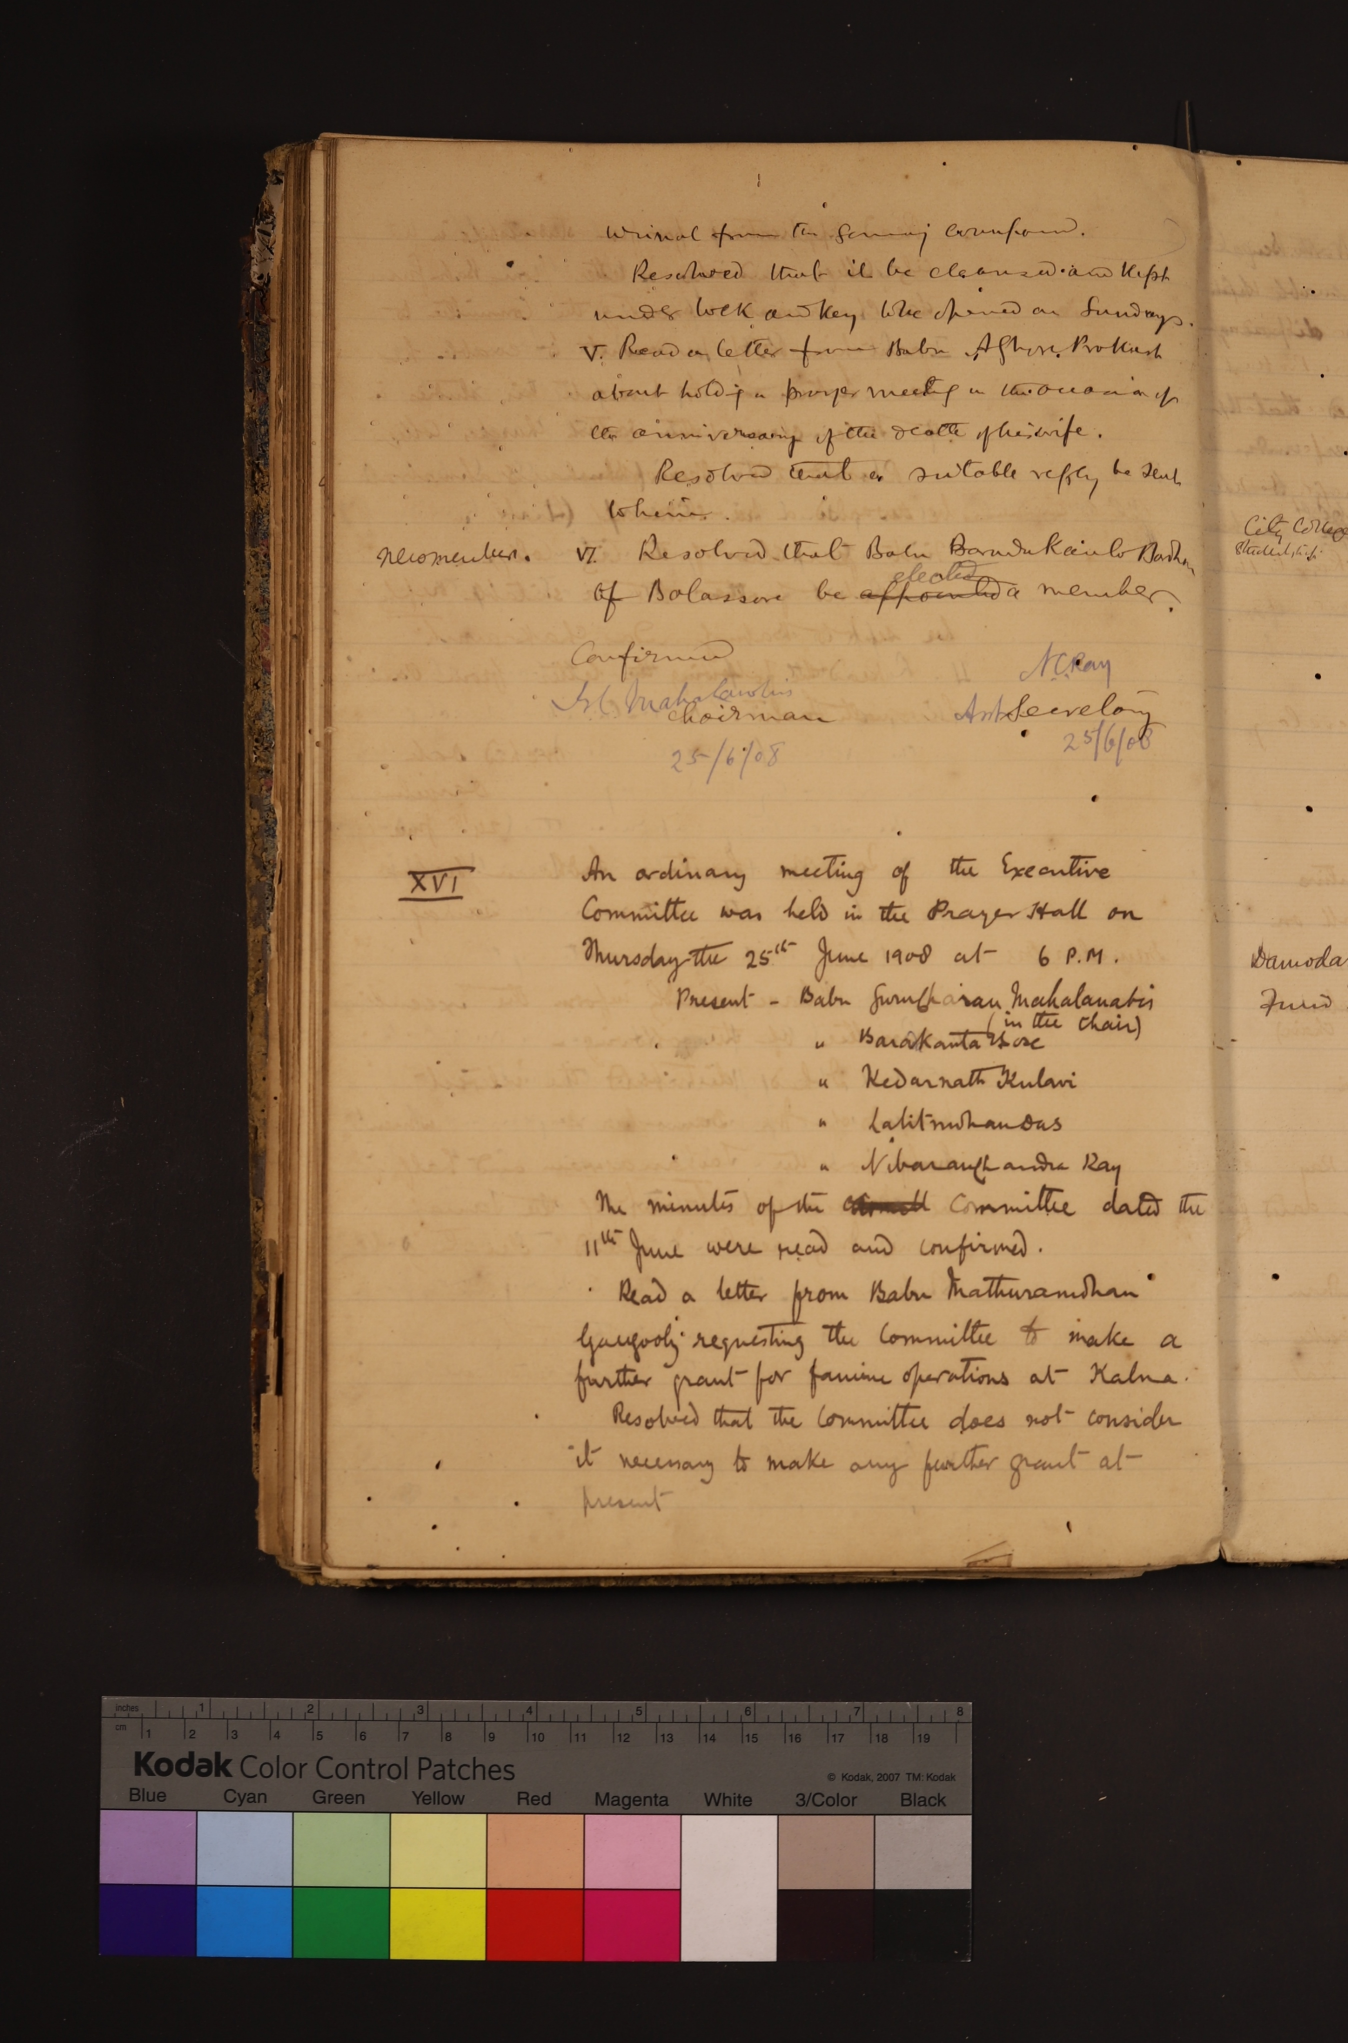 urinal from the Samaj compound.
Resolved that it be cleansed and kept
under lock and key to be opened on Sundays.
V. Read a letter from Babu Aghore Prokash
about holding a prayer meeting on the occasion of
the anniversary of the death of his wife.
Resolved that a suitable reply be sent
to him.
New member.
VI. Resolved that Babu Baradakanto Bardhan
of Balassore be appointed elected a member.
Confirmed
N.C. Ray
Mahalanobis
Chairman
Asst Secretary
25/6/08
25/6/08
XVI
An ordinary meeting of the Executive
Committee was held in the Prayer Hall on
Thursday the 25th June 1908 at 6 P.M.
Present - Babu Gurucharan Mahalanabis
(in the chair)
" Baradakanta Bose
" Kedarnath Kulavi
" Lalitmohan Das
" Nibaranchandra Ray
The minutes of the Committee dated the
11th June were read and confirmed.
Read a letter from Babu Mathuramohan
Gangooly requesting the Committee to make a
further grant for famine operations at Kalna.
Resolved that the Committee does not consider
it necessary to make any further grant at
present
City College
Studentship
Damoda
Fund
inches 1 2 3 4 5 6 7 8
cm 1 2 3 4 5 6 7 8 9 10 11 12 13 14 15 16 17 18 19
Kodak Color Control Patches
© Kodak, 2007 TM: Kodak
Blue Cyan Green Yellow Red Magenta White 3/Color Black